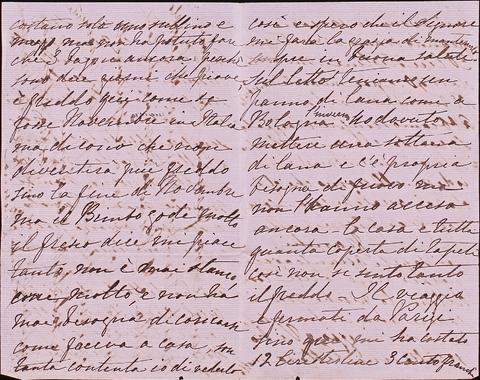 costano solo uno scellino e
mezzo ma non ho potuto fare
che i bagni ancora perché
sono due giorni che piove,
è freddo qui come se
fosse Novembre in Italia
ma dicono che non
diventerà più freddo
sino la fine di Novembre
ma il Bimbo gode molto
il fresco dice mi piace
tanto, non è mai stanco
come molto, e non ha
mai bisogno di
come faceva a casa, son
tanta contenta io di vederlo
così e spero che il Signore
mi farà la grazia di
sempre in buona salute
Sul letto teniamo un
panno di lana come a
Bologna l'inverno ho dovuto
mettere una sottana
di lana e c'è proprio
bisogno di fuoco ma
non l'hanno acceso
ancora la casa è tutta
quanta coperta di tapeti
così non si sente tanto
il freddo - Il viaggio
e fermate da Parigi
sino qui mi ha costato
12 lire sterline 3 cento franchi